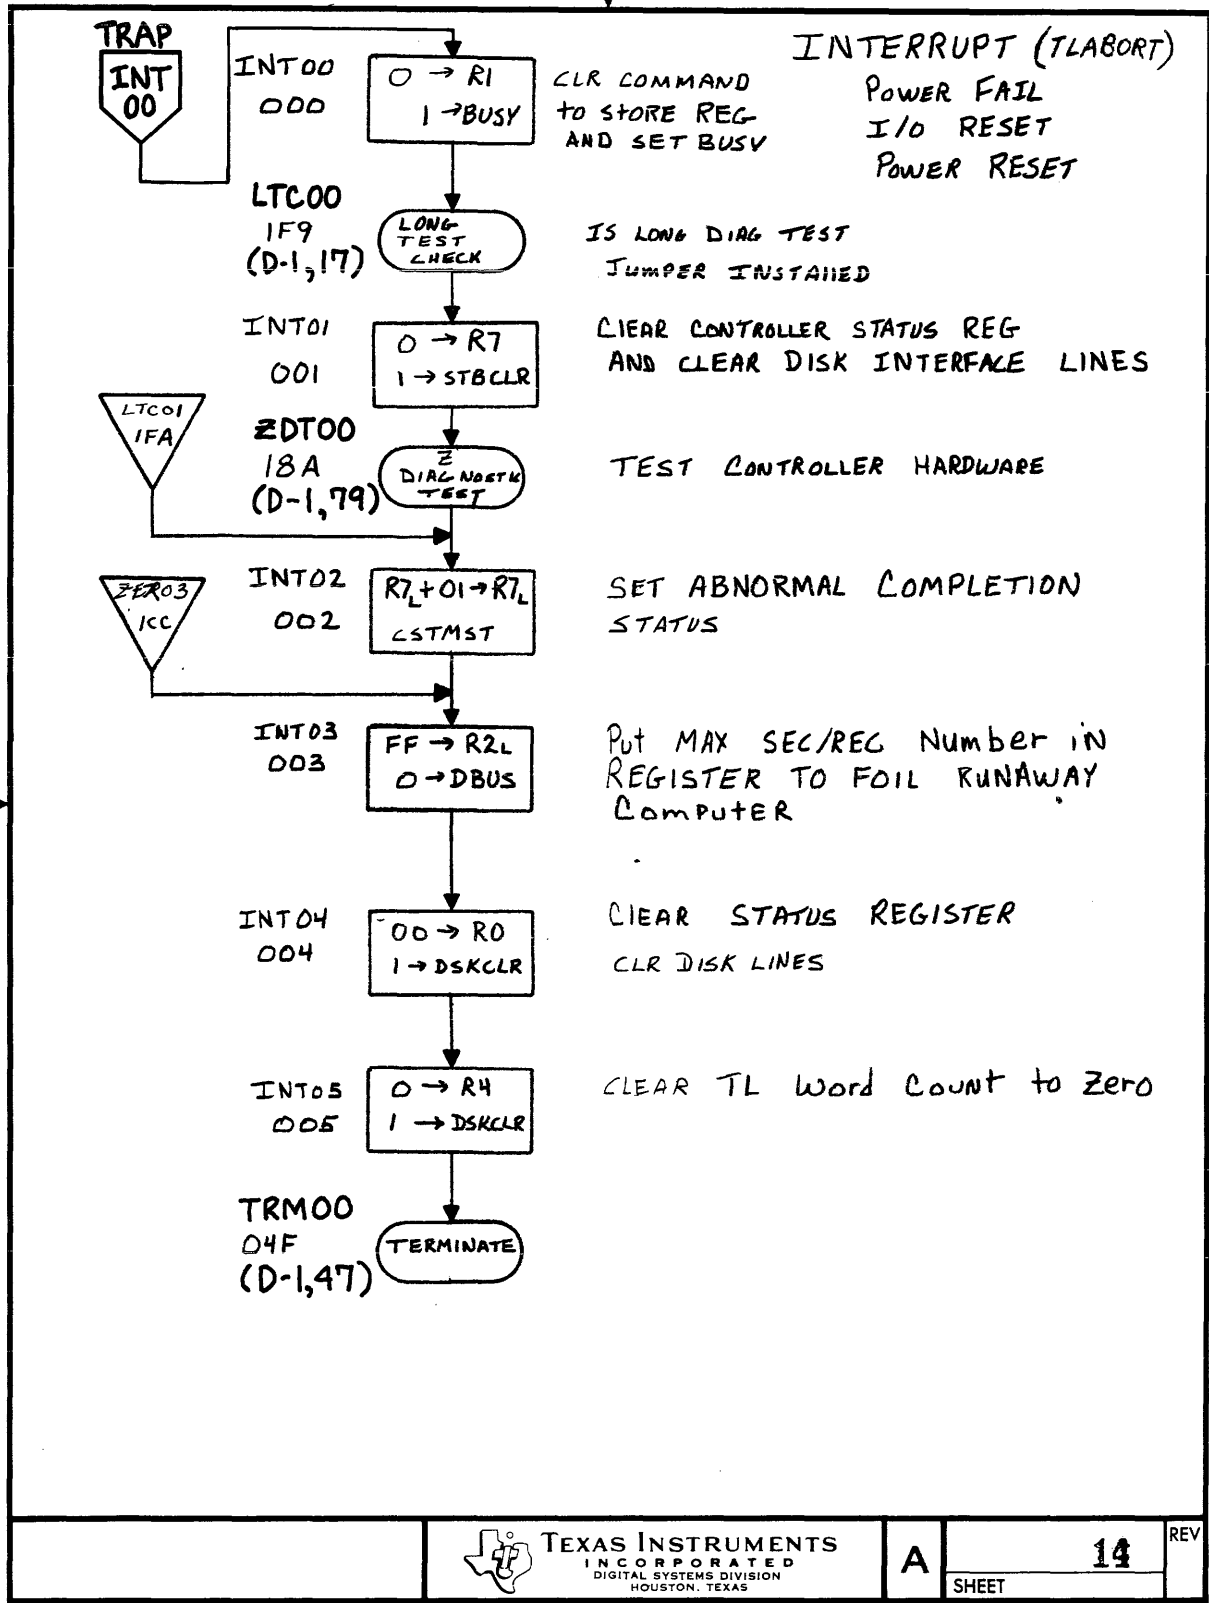 TRAP
INT
00
INTERRUPT (TLABORT)
POWER FAIL
I/O RESET
POWER RESET
INT00
000
0 → R1
1 → BUSY
CLR COMMAND
to STORE REG
AND SET BUSY
LTC00
1F9
(D-1,17)
LONG
TEST
CHECK
IS LONG DIAG TEST
JUMPER INSTAllED
INT01
001
0 → R7
1 → STBCLR
ClEAR CONTROLLER STATUS REG
AND CLEAR DISK INTERFACE LINES
LTC01
1FA
ZDT00
18A
(D-1,79)
Z
DIAGNOSTK
TEST
TEST CONTROLLER HARDWARE
ZER03
1CC
INT02
002
R7L+01→R7L
CSTMST
SET ABNORMAL COMPLETION
STATUS
INT03
003
FF → R2L
0 → DBUS
Put MAX SEC/REC Number iN
REGISTER TO FOIL RUNAWAY
ComPutER
INT04
004
00 → R0
1 → DSKCLR
ClEAR STATUS REGISTER
CLR DISK LINES
INT05
005
0 → R4
1 → DSKCLR
CLEAR TL Word Count to Zero
TRM00
04F
(D-1,47)
TERMINATE
TEXAS INSTRUMENTS
INCORPORATED
DIGITAL SYSTEMS DIVISION
HOUSTON, TEXAS
A
14
SHEET
REV